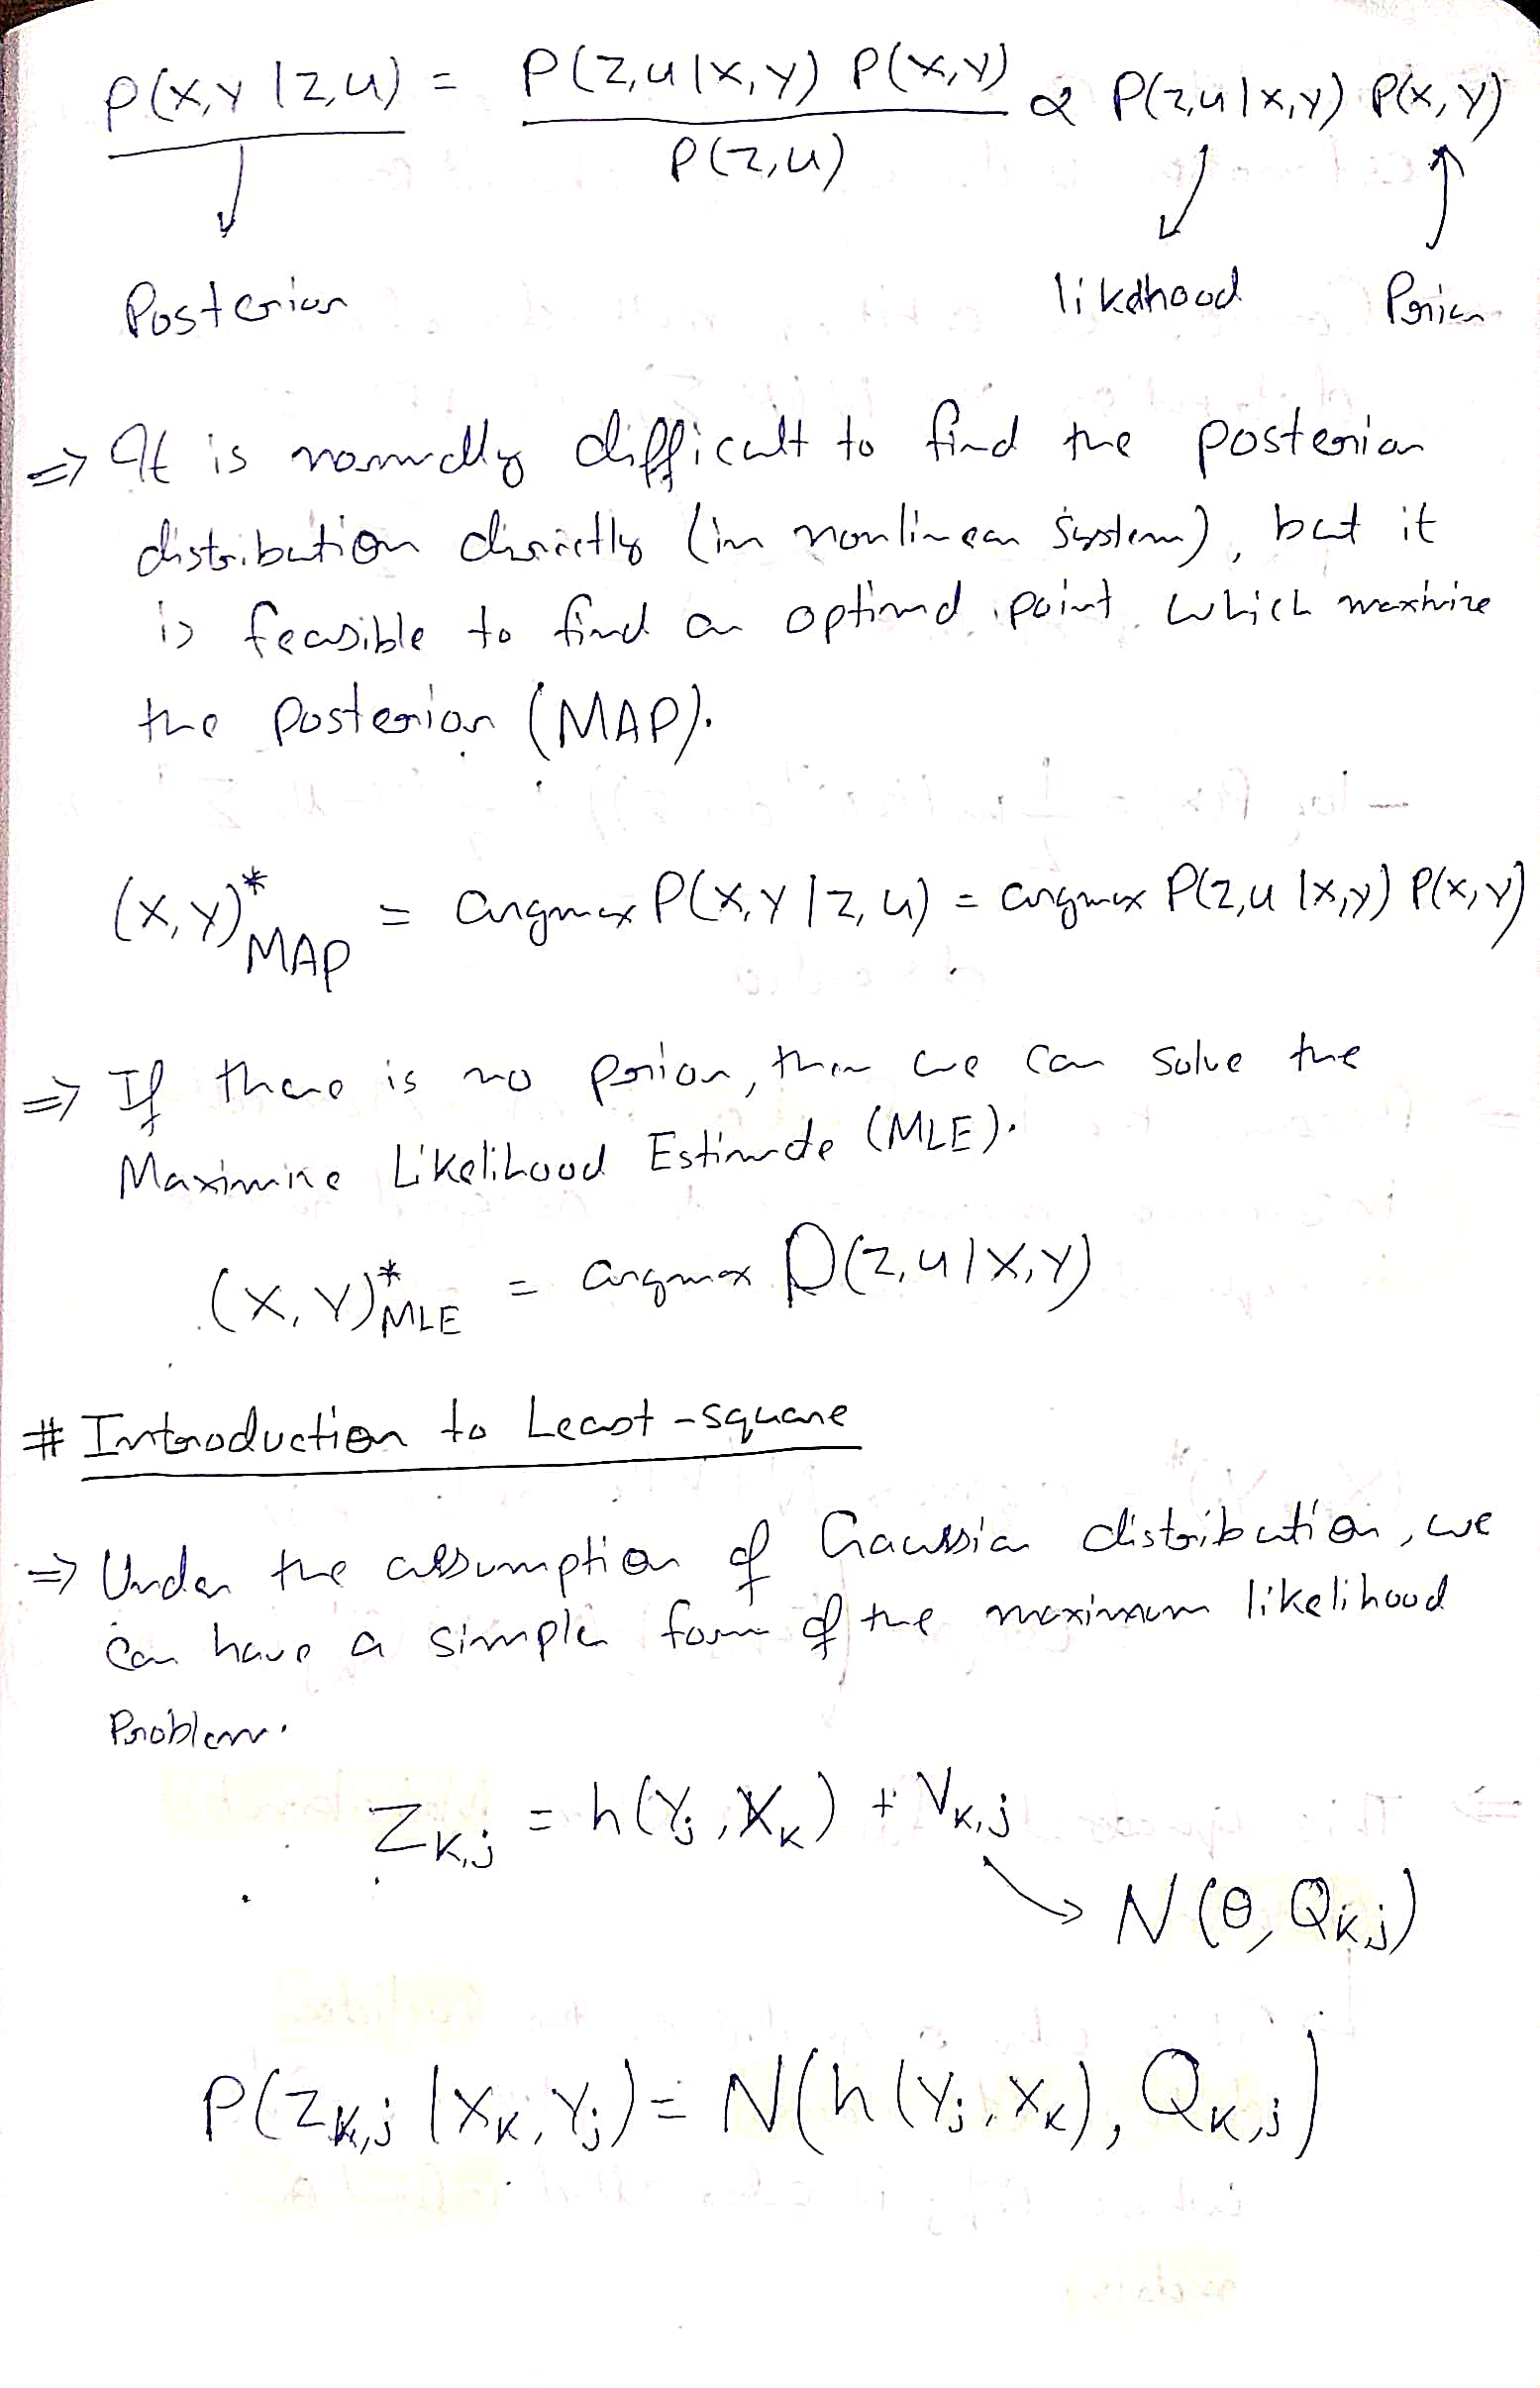 P(x,y|z,u) = P(z,u|x,y) P(x,y) / P(z,u) ∝ P(z,u|x,y) P(x,y)
Posterior likelihood Prior
⇒ It is normally difficult to find the posterior
distribution directly (in nonlinear system), but it
is feasible to find an optimal point which maximize
the posterior (MAP).
(x,y)*MAP = argmax P(x,y|z,u) = argmax P(z,u|x,y) P(x,y)
⇒ If there is no prior, then we can solve the
Maximize Likelihood Estimate (MLE).
(x,y)*MLE = argmax P(z,u|x,y)
# Introduction to Least-square
⇒ Under the assumption of Gaussian distribution, we
can have a simpler form of the maximum likelihood
Problem.
Zk,j = h(Yj, Xk) + Vk,j
→ N(0, Qk,j)
P(Zk,j | Xk, Yj) = N(h(Yj, Xk), Qk,j)